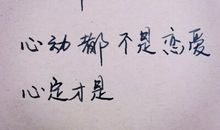 心动都不是恋爱
心定才是